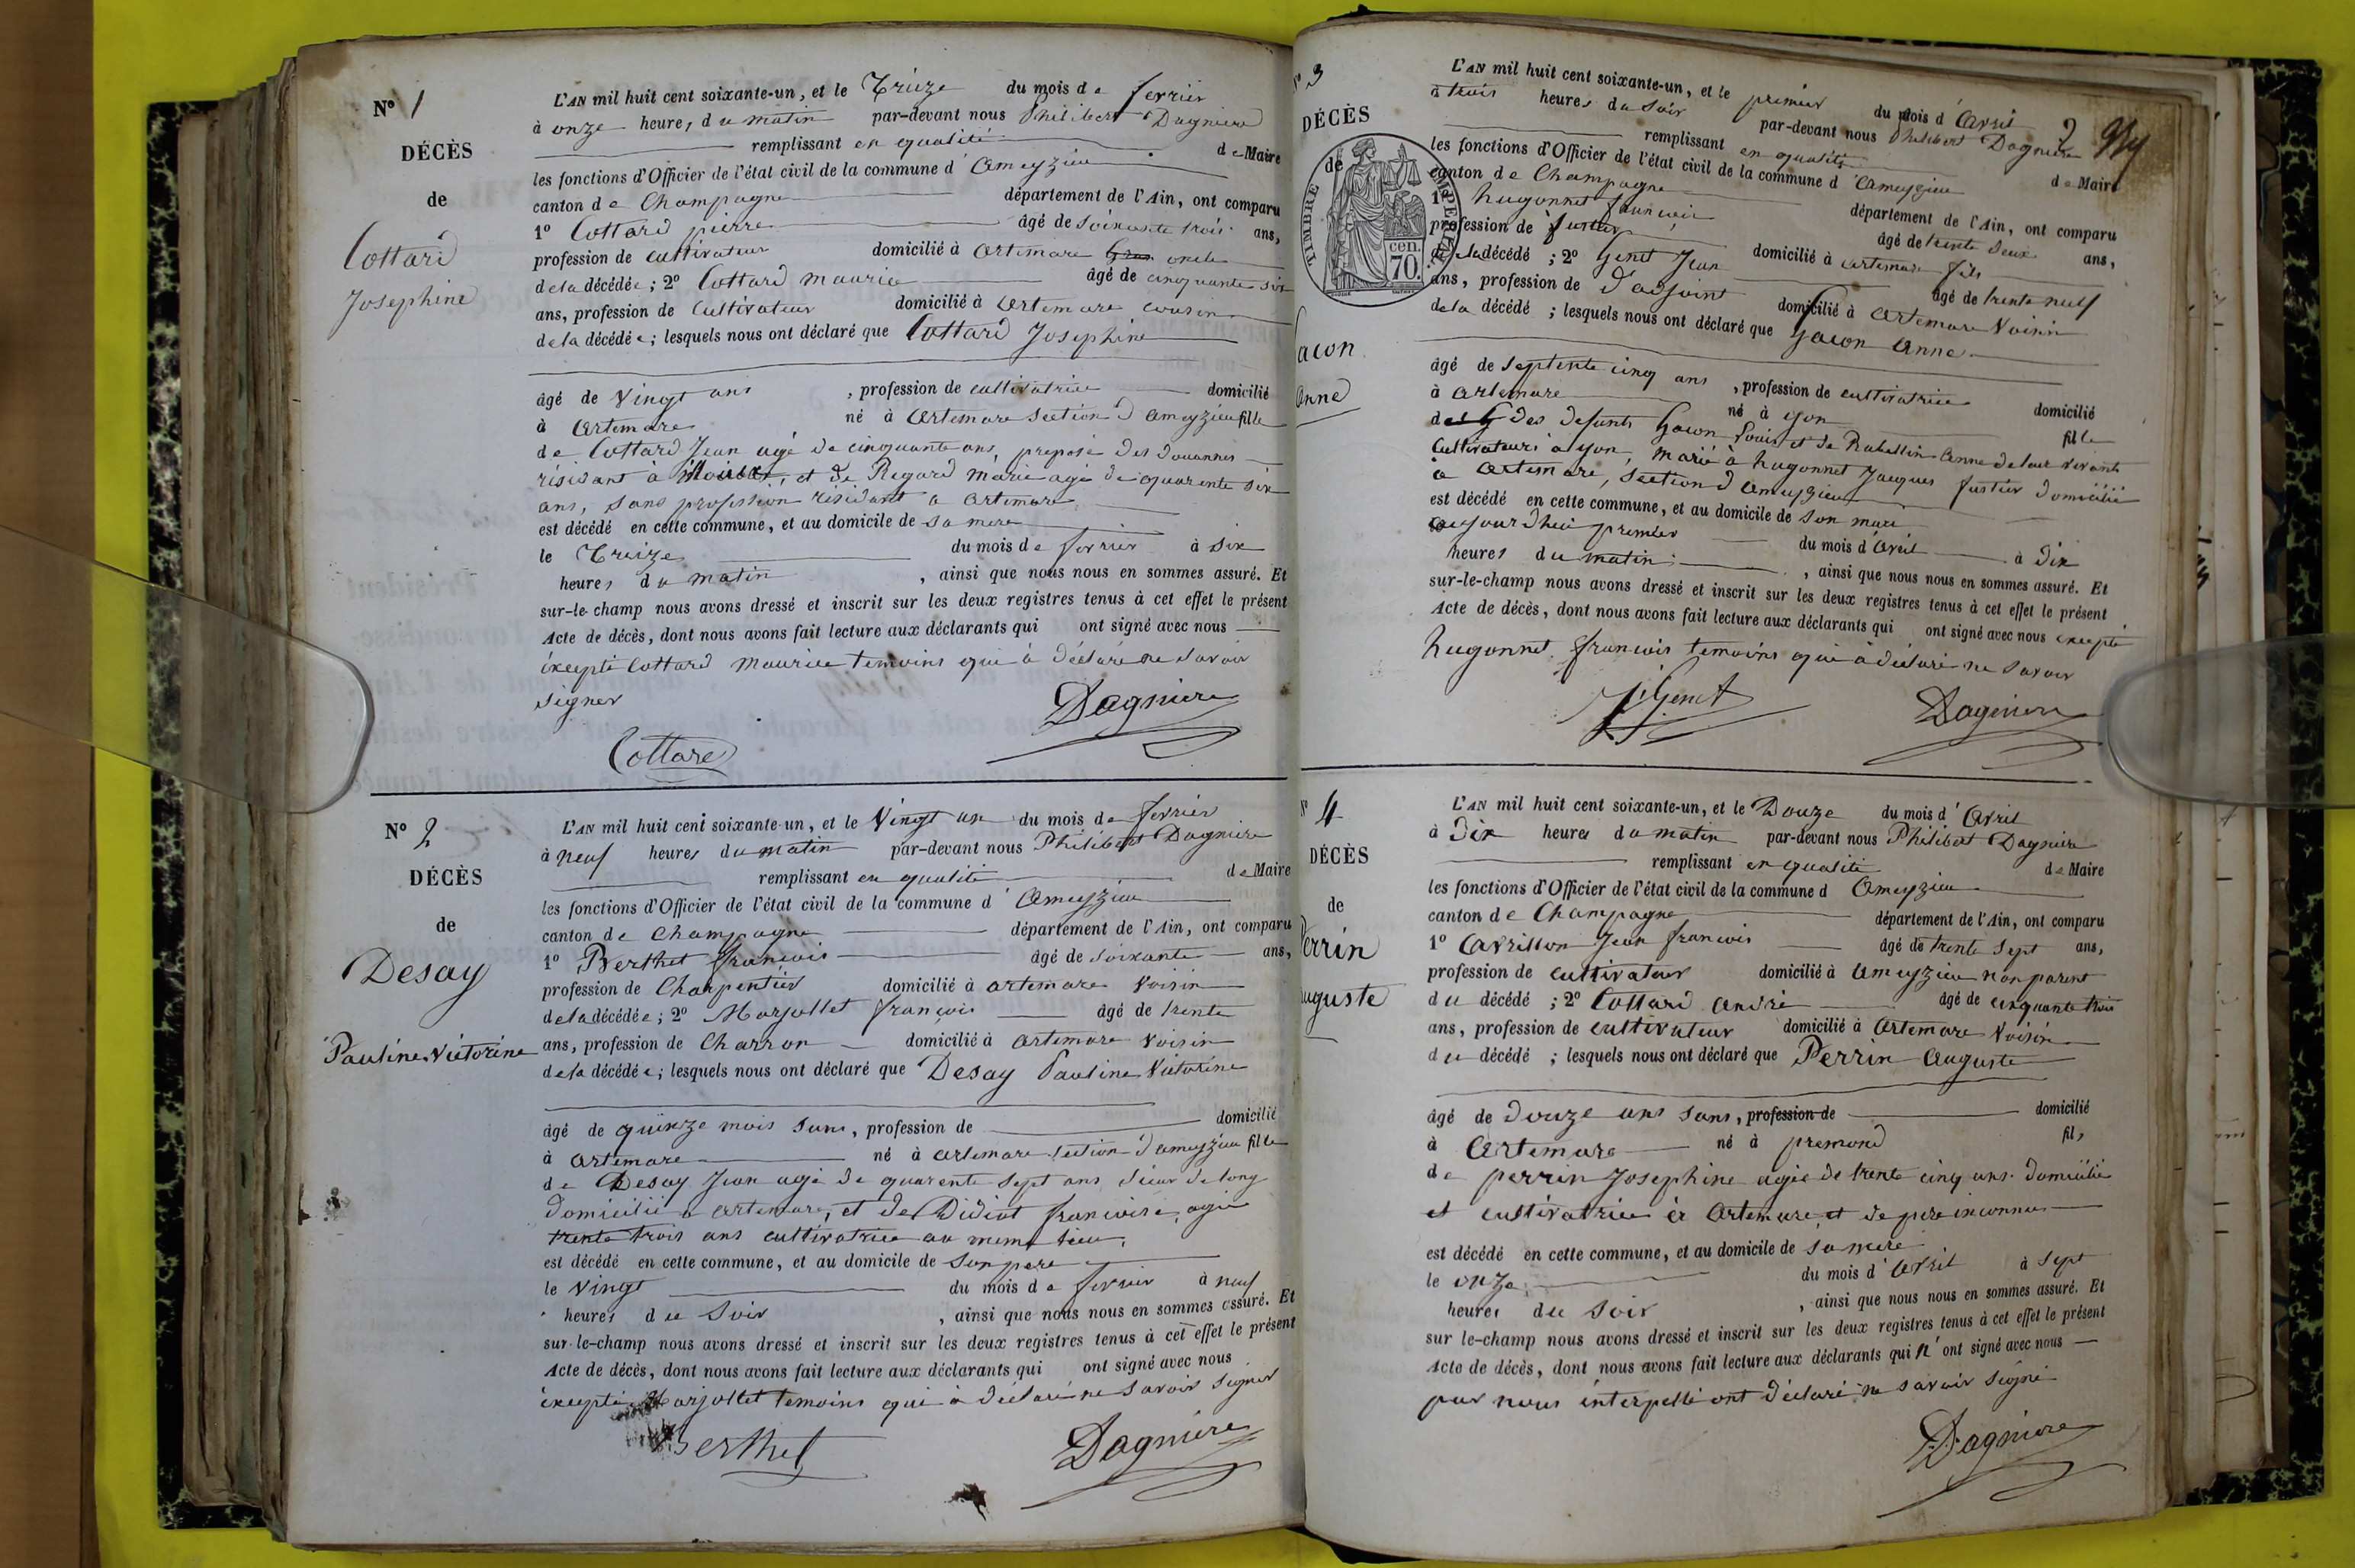 N° 1
DÉCÈS
de
Cottard
Josephine
L'AN mil huit cent soixante-un, et le Treize du mois de fevrier
à onze heures du matin par-devant nous Philibert Dagniere
remplissant en qualité de Maire
les fonctions d'Officier de l'état civil de la commune d' Ameyzieu
canton de Champagne département de l'Ain, ont comparu
1° Cottard pierre âgé de soixante trois ans,
profession de cultivateur domicilié à Artemare oncle
de la décédée; 2° Cottard maurice âgé de cinquante six
ans, profession de Cultivateur domicilié à Artemare cousin
de la décédée; lesquels nous ont déclaré que Cottard Josephine
âgé de vingt ans, profession de cultivatrice domicilié
à Artemare né à Artemare section d'ameyzieu fille
de Cottard Jean agé de cinquante ans, preposé des douannes
résidant à et de Regard marie agé de quarente six
ans, sans profession résidant a Artemare
est décédé en cette commune, et au domicile de sa mere
le Treize du mois de fevrier à six
heures du matin, ainsi que nous nous en sommes assuré. Et
sur-le-champ nous avons dressé et inscrit sur les deux registres tenus à cet effet le présent
Acte de décès, dont nous avons fait lecture aux déclarants qui ont signé avec nous
éxcepté Cottard maurice temoins qui à déclaré ne savoir
signer
Dagniere
Cottard
N° 2
DÉCÈS
de
Desay
Pauline Victorine
L'AN mil huit cent soixante-un, et le vingt un du mois de fevrier
à neuf heures du matin par-devant nous Philibert Dagniere
remplissant en qualité de Maire
les fonctions d'Officier de l'état civil de la commune d' Ameyzieu
canton de Champagne département de l'Ain, ont comparu
1° Berthet francois âgé de soixante ans,
profession de Charpentier domicilié à artemare voisin
de la décédée; 2° Marjollet françois âgé de trente
ans, profession de Charron domicilié à artemare voisin
de la décédée; lesquels nous ont déclaré que Desay Pauline Victorine
âgé de quinze mois sans, profession de domicilié
à artemare né à artemare section d'ameyzieu fille
de Desay Jean agé de quarente sept ans sieur de long
domicilié a artemare, et de Didiat francoise, agée
trente trois ans cultivatrice au meme lieu.
est décédé en cette commune, et au domicile de son pere
le vingt du mois de fevrier à neuf
heures du soir, ainsi que nous nous en sommes assuré. Et
sur-le-champ nous avons dressé et inscrit sur les deux registres tenus à cet effet le présent
Acte de décès, dont nous avons fait lecture aux déclarants qui ont signé avec nous
éxcepté Marjollet temoins qui à déclaré ne savoir signer
Berthet
Dagniere
N° 3
DÉCÈS
de
TIMBRE IMPERIAL
70 cen.
acon
Anne
L'AN mil huit cent soixante-un, et le premier du mois d'Avril
à trois heures du soir par-devant nous Philibert Dagniere
remplissant en qualité de Maire
les fonctions d'Officier de l'état civil de la commune d'Ameyzieu
canton de Champagne département de l'Ain, ont comparu
1° hugonnet francois âgé de trente deux ans,
profession de fustier domicilié à artemare fils
de la décédé; 2° Genet Jean âgé de trente neuf
ans, profession de d'adjoint domicilié à Artemare voisin
de la décédé; lesquels nous ont déclaré que Gacon Anne
âgé de septente cinq ans, profession de cultivatrice domicilié
à Artemare né à yon fille
des defunts Gacon Louis et de Rabellin Anne de leur vivant
Cultivateurs a yon, marié à hugonnet Jacques fustier domicilié
a Artemare, section d'ameyzieu
est décédé en cette commune, et au domicile de son mari
aujourdhui premier du mois d'Avril à dix
heures du matin, ainsi que nous nous en sommes assuré. Et
sur-le-champ nous avons dressé et inscrit sur les deux registres tenus à cet effet le présent
Acte de décès, dont nous avons fait lecture aux déclarants qui ont signé avec nous excepté
hugonnet francois temoins qui à déclaré ne savoir
Genet
Dagniere
N° 4
DÉCÈS
de
Perrin
uguste
L'AN mil huit cent soixante-un, et le Douze du mois d'Avril
à Dix heures du matin par-devant nous Philibert Dagniere
remplissant en qualité de Maire
les fonctions d'Officier de l'état civil de la commune d Ameyzieu
canton de Champagne département de l'Ain, ont comparu
1° Carrillon Jean francois âgé de trente sept ans,
profession de cultivateur domicilié à Ameyzieu non parent
du décédé; 2° Cottard André âgé de cinquante trois
ans, profession de cultivateur domicilié à Artemare voisin
du décédé; lesquels nous ont déclaré que Perrin Auguste
âgé de douze ans sans, profession de domicilié
à Artemare né à premond fils
de perrin Josephine agée de trente cinq ans domicilié
et cultivatrice à Artemare, et de pere inconnus
est décédé en cette commune, et au domicile de sa mere
le onze du mois d'Avril à sept
heures du soir, ainsi que nous nous en sommes assuré. Et
sur le-champ nous avons dressé et inscrit sur les deux registres tenus à cet effet le présent
Acte de décès, dont nous avons fait lecture aux déclarants qui n'ont signé avec nous
par nous interpellé ont déclaré ne savoir signé
Dagniere